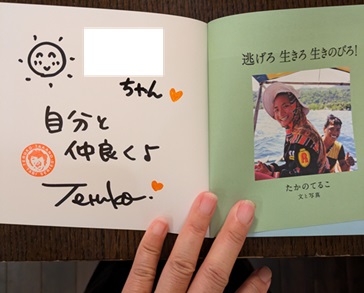 ちゃん
自分と
仲良くよ
Teruko.
逃げろ 生きろ 生きのびろ!
たかのてるこ
文と写真